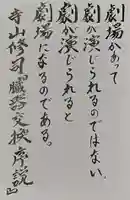 劇場があって
劇が演じられるのではない。
劇が演じられると
劇場になるのである。
寺山修司『臓器交換序説』